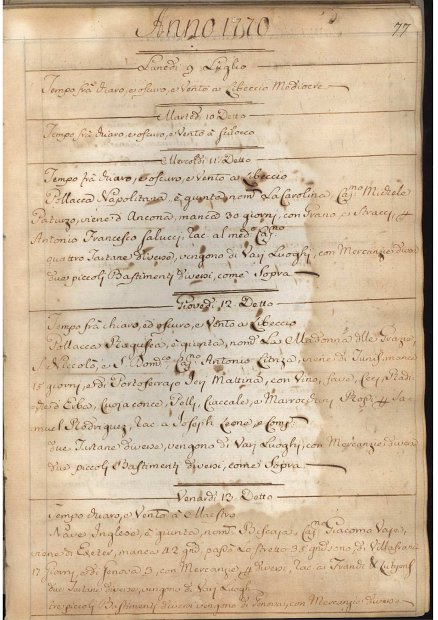 Anno 1770
77
Lunedi 9 Luglio
Tempo frà chiaro, e oscuro, e Vento a Libeccio Mediocre
Martedi 10 Detto
Tempo frà chiaro, e oscuro, e Vento à Scilocco
Mercoldi 11 Detto
Tempo frà chiaro, ed oscuro, e Vento a Libeccio
Pollacca Napolitana, è giunta, nom.ta La Carolina, Cap.no Michele
viene d'Ancona, manca 30 giorni, con Grano, e Stracci, #
Antonio Francesco Salucci, rac. al med. Cap.no
quattro Tartane diverse, vengono di Varj Luoghi, con Mercanzie diverse
due piccoli Bastimenti diversi, come Sopra
Giovedi 12 Detto
Tempo frà chiaro, ed oscuro, e Vento a Libeccio
Pollacca è giunta, nom.ta La Madonna delle Grazie,
S. Niccolò, e S. Dom.co Cap.no Antonio viene di Tunis, manca
15 giorni, e di Portoferraio Ieri Mattina, con Vino, fave, Ceci,
d'Erba, Cuoja conce, Pelli, e Marrocchini #
muel Rodriguez, rac. a Joseph Leone, e Comp.
due Tartane diverse, vengono di Varj Luoghi, con Mercanzie diverse
due piccoli Bastimenti diversi, come Sopra
Venardi 13 Detto
Tempo chiaro, e Vento à Maestro
Nave Inglese, è giunta, nom.ta Cap.no Giacomo
viene di Exeter, manca 42 gior. passò Lo Stretto di Villafranca
17 Giorni, e di Genova 3, con Mercanzie, # diversi, rac. a
due Tartane diverse, vengono di Varj Luoghi
tre piccoli Bastimenti diversi vengono di Genova, con Mercanzie diverse